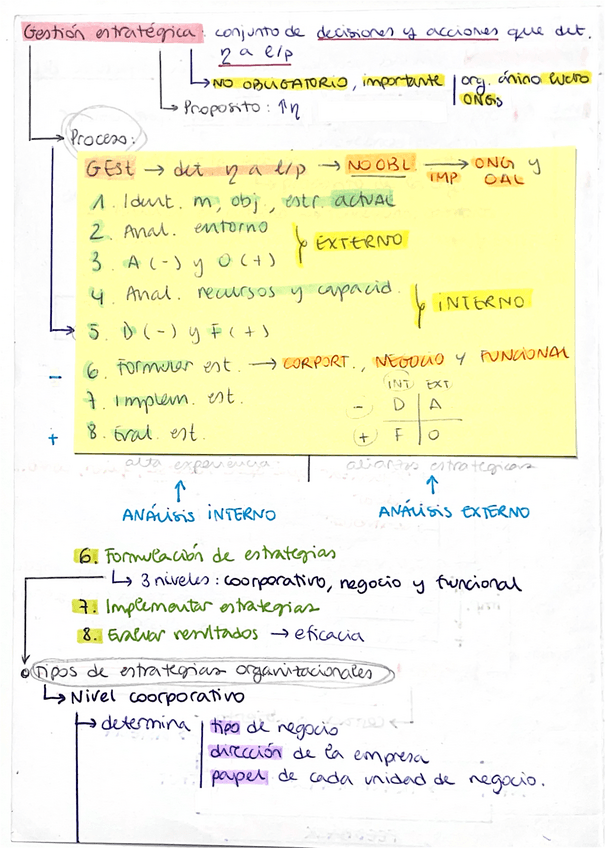 Gestión estratégica: conjunto de decisiones y acciones que det.
η a l/p
→ NO OBLIGATORIO, importante | org. ánimo lucro
ONGs
→ Proposito: ↑η
→ Proceso:
GEst → det η a l/p → NO OBL → ONG y
IMP OAL
1. Ident. m, obj, estr. actual
2. Anal. entorno
EXTERNO
3. A (-) y O (+)
4. Anal. recursos y capacid.
INTERNO
5. D (-) y F (+)
6. Formular est. → CORPORT., NEGOCIO y FUNCIONAL
7. Implem. est.
8. Eval. est.
INT EXT
- D A
+ F O
-
+
alta experiencia. aliantes estrategicas
ANÁLISIS INTERNO ANÁLISIS EXTERNO
6. Formulación de estrategias
↳ 3 niveles: coorporativo, negocio y funcional
7. Implementar estrategias
8. Evaluar resultados → eficacia
Tipos de estrategias organizacionales
↳ Nivel coorporativo
→ determina | tipo de negocio
dirección de la empresa
papel de cada unidad de negocio.